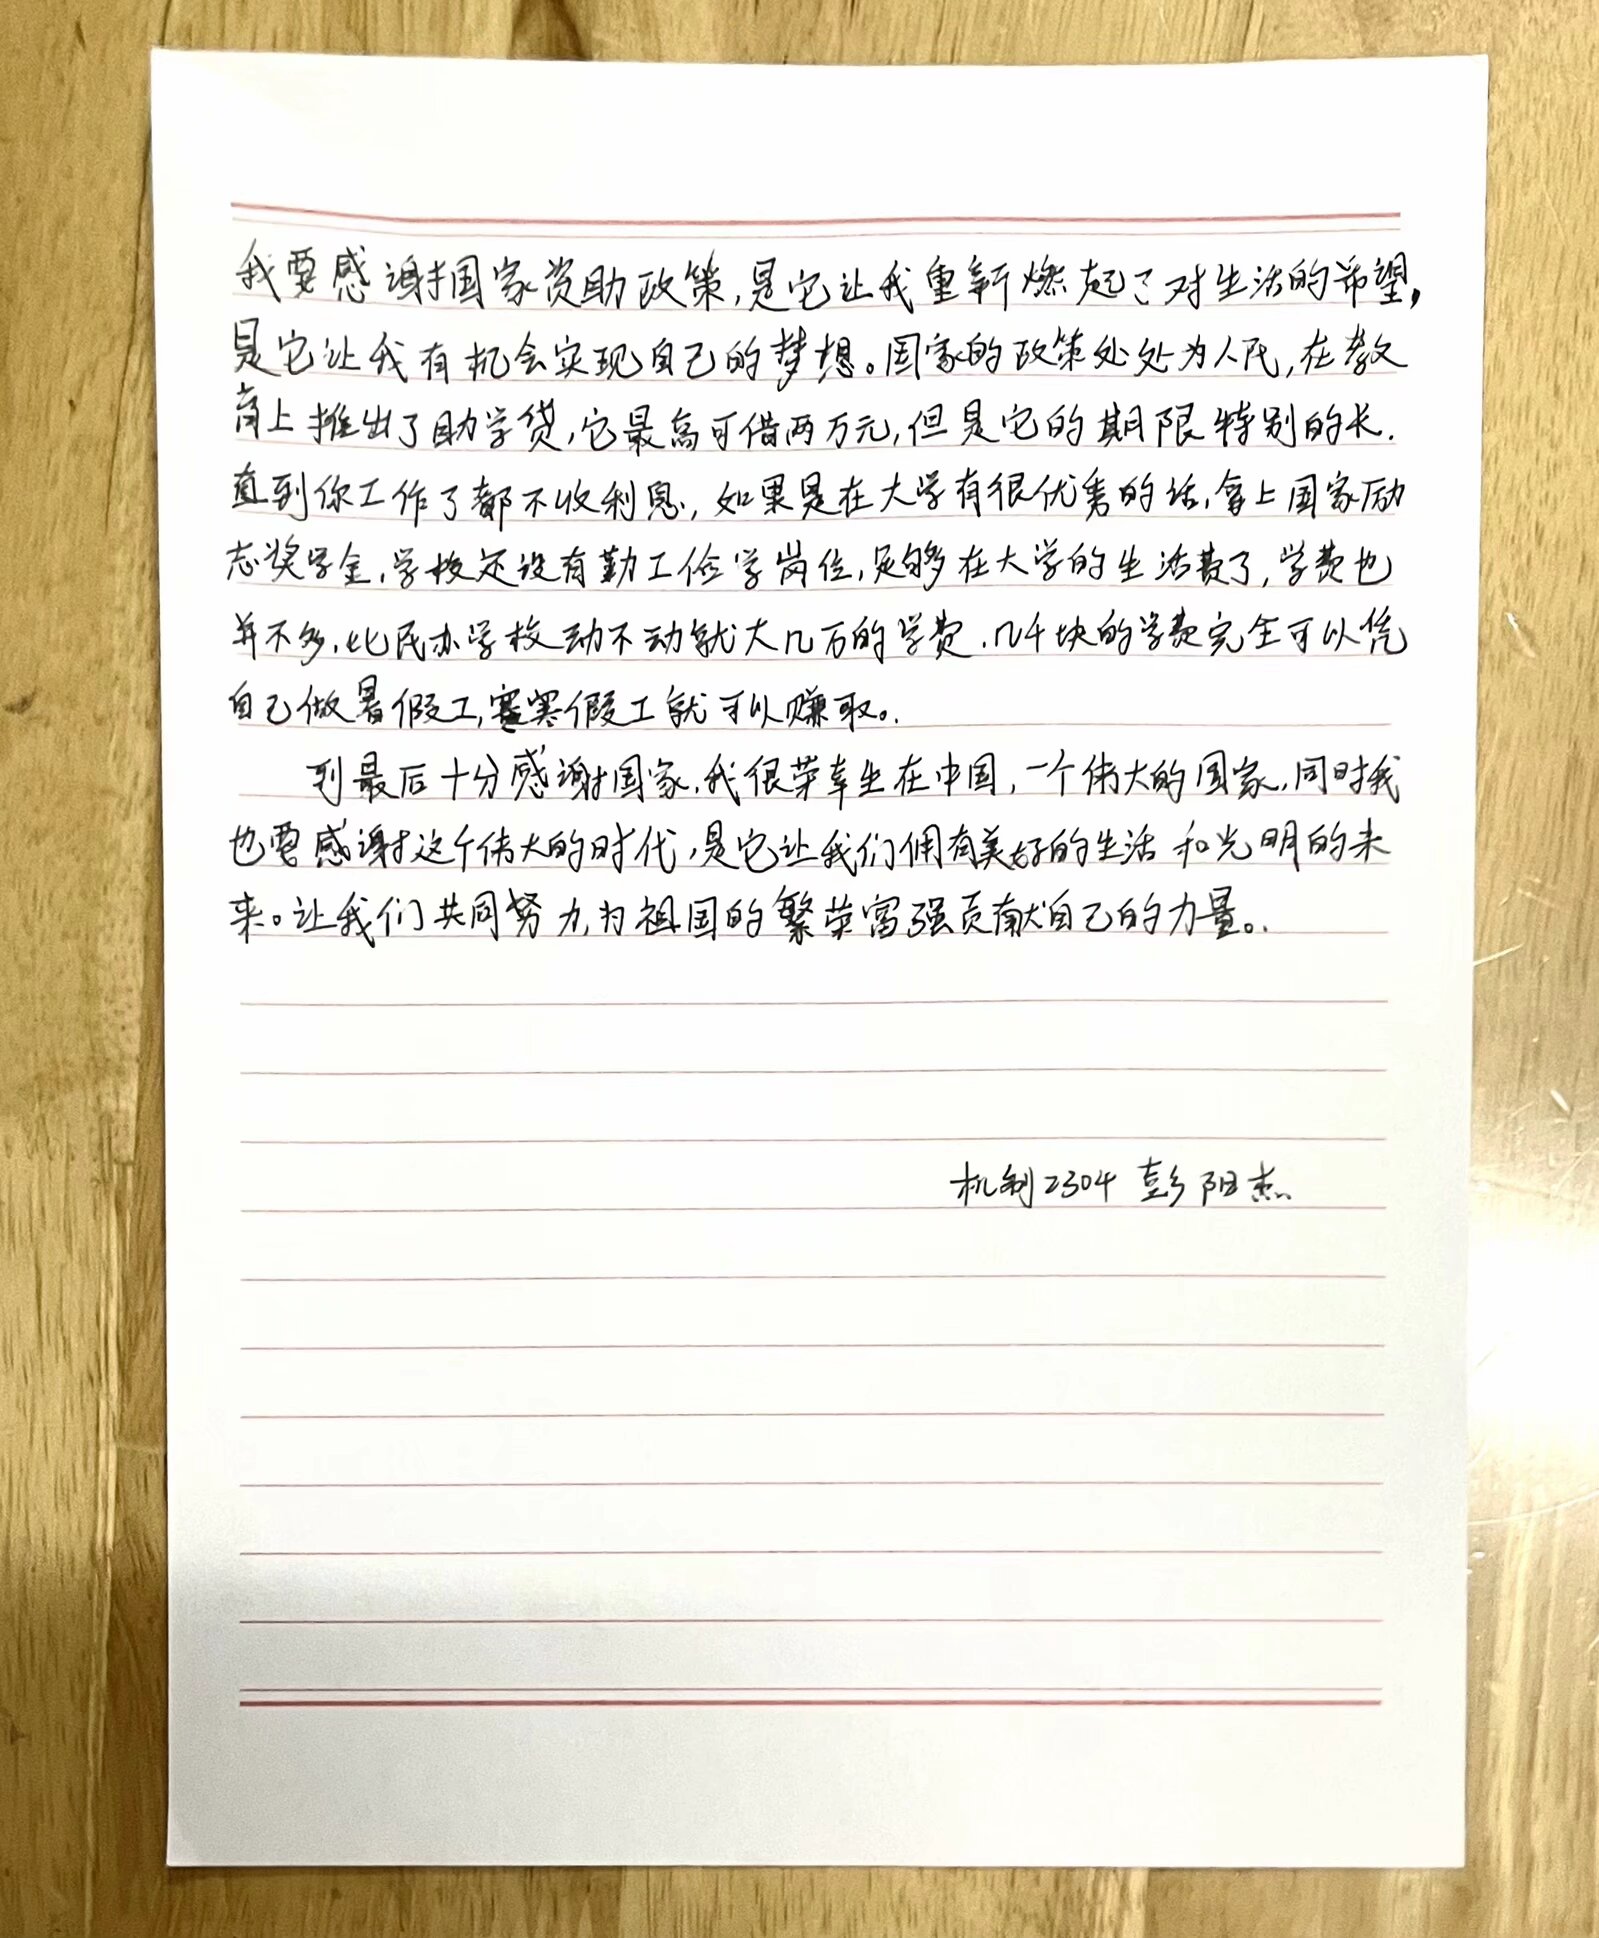 我要感谢国家资助政策,是它让我重新燃起了对生活的希望,
是它让我有机会实现自己的梦想。国家的政策处处为人民,在教
育上推出了助学贷,它最高可借两万元,但是它的期限特别的长.
直到你工作了都不收利息,如果是在大学有很优秀的话,拿上国家励
志奖学金,学校还设有勤工俭学岗位,足够在大学的生活费了,学费也
并不多,比民办学校动不动就大几万的学费.几千块的学费完全可以凭
自己做暑假工,寒假工就可以赚取。.
到最后十分感谢国家,我很荣幸生在中国,一个伟大的国家,同时我
也要感谢这个伟大的时代,是它让我们佣有美好的生活和光明的未
来。让我们共同努力,为祖国的繁荣富强贡献自己的力量。.
机制2304 彭阳杰